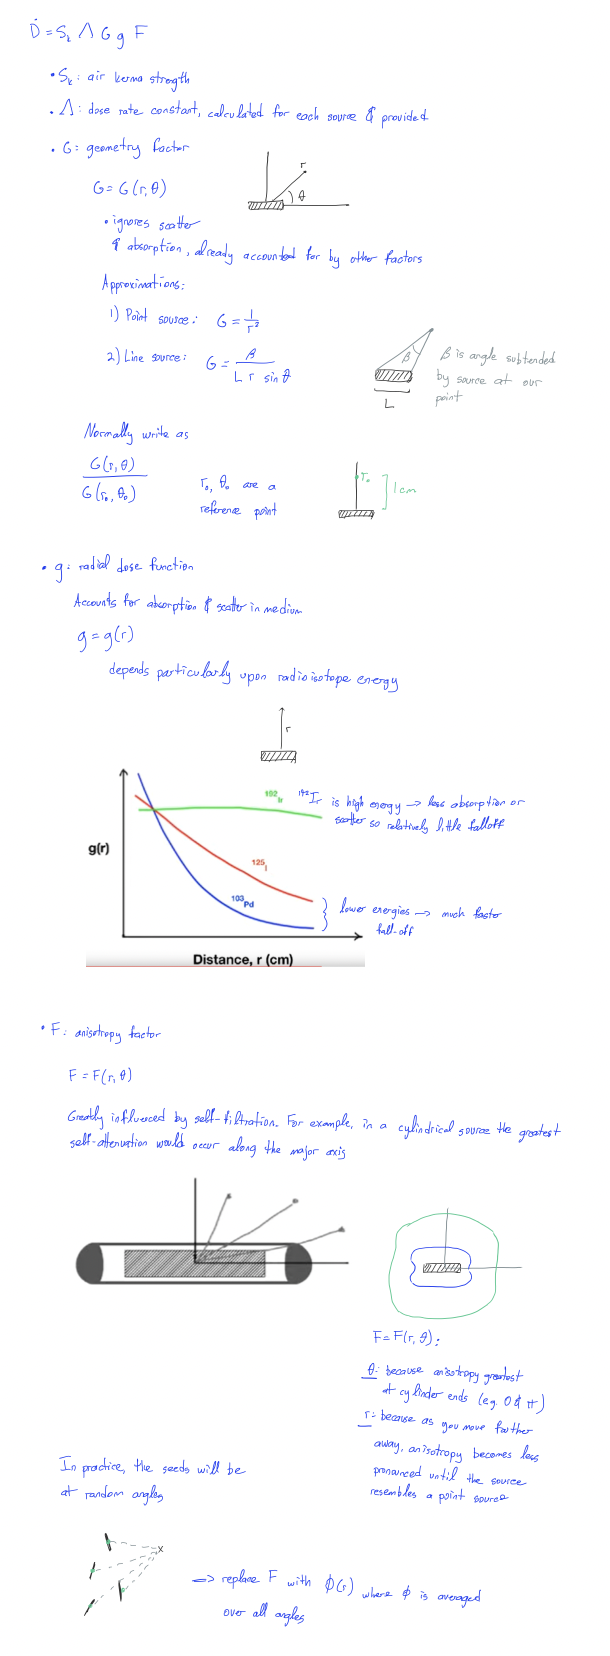 Ḋ = Sₖ Λ G g F
• Sₖ: air kerma strength
• Λ: dose rate constant, calculated for each source & provided
• G: geometry factor
G = G(r, θ)
r
θ
• ignores scatter
& absorption, already accounted for by other factors
Approximations:
1) Point source: G = 1/r²
2) Line source: G = β / (L r sin θ)
β
L
β is angle subtended
by source at our
point
Normally write as
G(r, θ) / G(r₀, θ₀)
r₀, θ₀ are a
reference point
r₀
1 cm
• g: radial dose function
Accounts for absorption & scatter in medium
g = g(r)
depends particularly upon radioisotope energy
r
g(r)
192Ir
125I
103Pd
Distance, r (cm)
¹⁹²Ir is high energy → less absorption or
scatter so relatively little falloff
lower energies → much faster
fall-off
• F: anisotropy factor
F = F(r, θ)
Greatly influenced by self-filtration. For example, in a cylindrical source the greatest
self-attenuation would occur along the major axis
F = F(r, θ):
θ: because anisotropy greatest
at cylinder ends (eg. 0 & π)
r: because as you move farther
away, anisotropy becomes less
pronounced until the source
resembles a point source
In practice, the seeds will be
at random angles
x
⇒ replace F with ϕ(r) where ϕ is averaged
over all angles